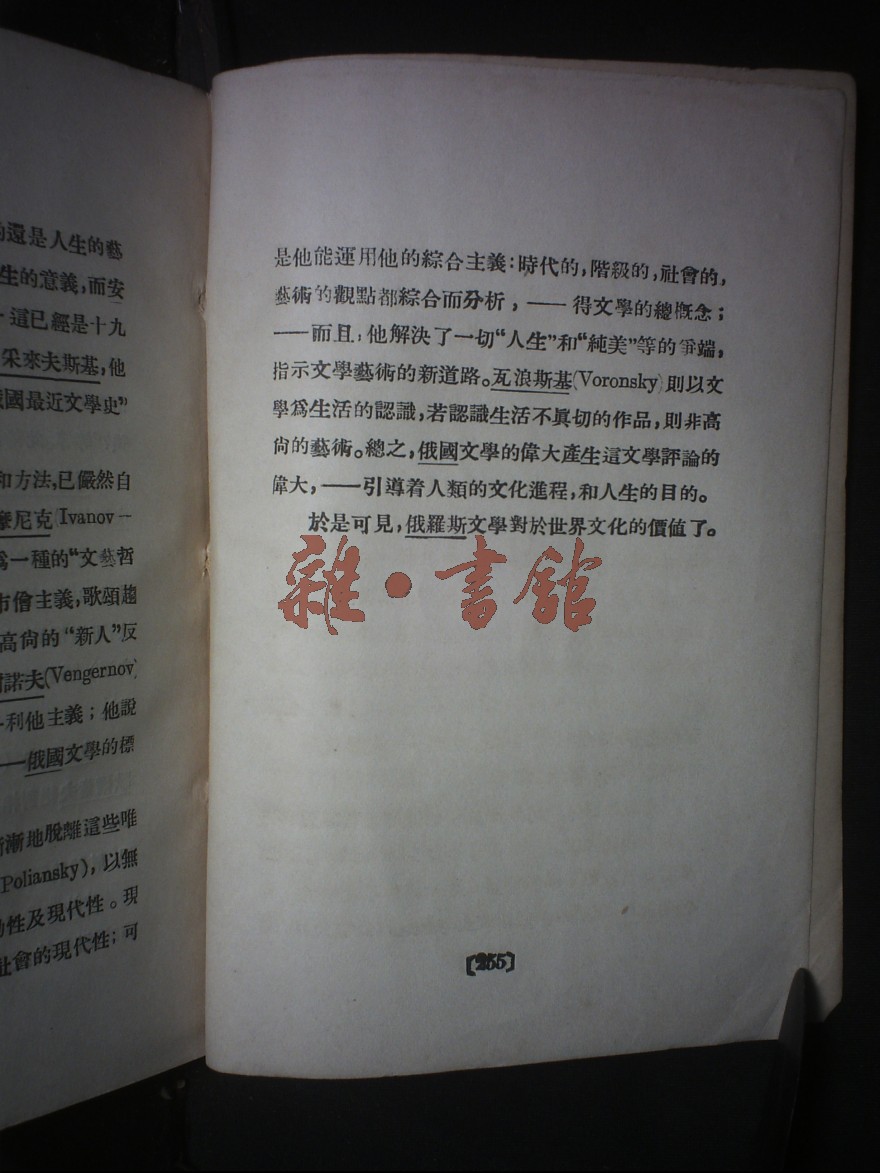 還是人生的藝
生的意義，而安
這已經是十九
采來夫斯基，他
國最近文學史”
和方法，已儼然自
摩尼克(Ivanov—
爲一種的“文藝哲
市儈主義，歌頌超
高尙的“新人”反
諾夫(Vengernov)
利他主義；他說
——俄國文學的標
漸漸地脫離這些唯
Poliansky)，以無
性及現代性。現
社會的現代性；可
是他能運用他的綜合主義：時代的，階級的，社會的，
藝術的觀點都綜合而分析，——得文學的總槪念；
——而且，他解決了一切“人生”和“純美”等的爭端，
指示文學藝術的新道路。瓦浪斯基(Voronsky)則以文
學爲生活的認識，若認識生活不眞切的作品，則非高
尙的藝術。總之，俄國文學的偉大產生這文學評論的
偉大，——引導着人類的文化進程，和人生的目的。
於是可見，俄羅斯文學對於世界文化的價値了。
雜·書館
〔255〕